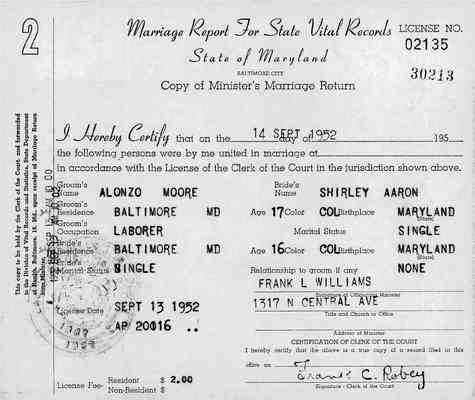 2
Marriage Report For State Vital Records
LICENSE NO.
02135
State of Maryland
BALTIMORE CITY
30213
Copy of Minister's Marriage Return
This copy to be held by the Clerk of the Court, and forwarded
to the Division of Vital Records and Statistics, State Department
of Health, Baltimore, 18, Md., upon receipt of Marriage Return
from Minister.
I Hereby Certify that on the 14 SEPT 1952 day of 195
the following persons were by me united in marriage at
in accordance with the License of the Clerk of the Court in the jurisdiction shown above.
Groom's Name ALONZO MOORE Bride's Name SHIRLEY AARON
Groom's Residence BALTIMORE MD Age 17 Color COL Birthplace MARYLAND
(State)
Groom's Occupation LABORER Marital Status SINGLE
Bride's Residence BALTIMORE MD Age 16 Color COL Birthplace MARYLAND
(State)
Bride's Marital Status SINGLE Relationship to groom if any NONE
FRANK L WILLIAMS
Signature of Officiating Minister
License Date SEPT 13 1952 1317 N CENTRAL AVE
Title and Church or Office
AP 20016 ..
Address of Minister
CERTIFICATION OF CLERK OF THE COURT
I hereby certify that the above is a true copy of a record filed in this
office on
Frank C. Robey
License Fee- Resident $ 2.00
Non-Resident $
Signature - Clerk of the Court